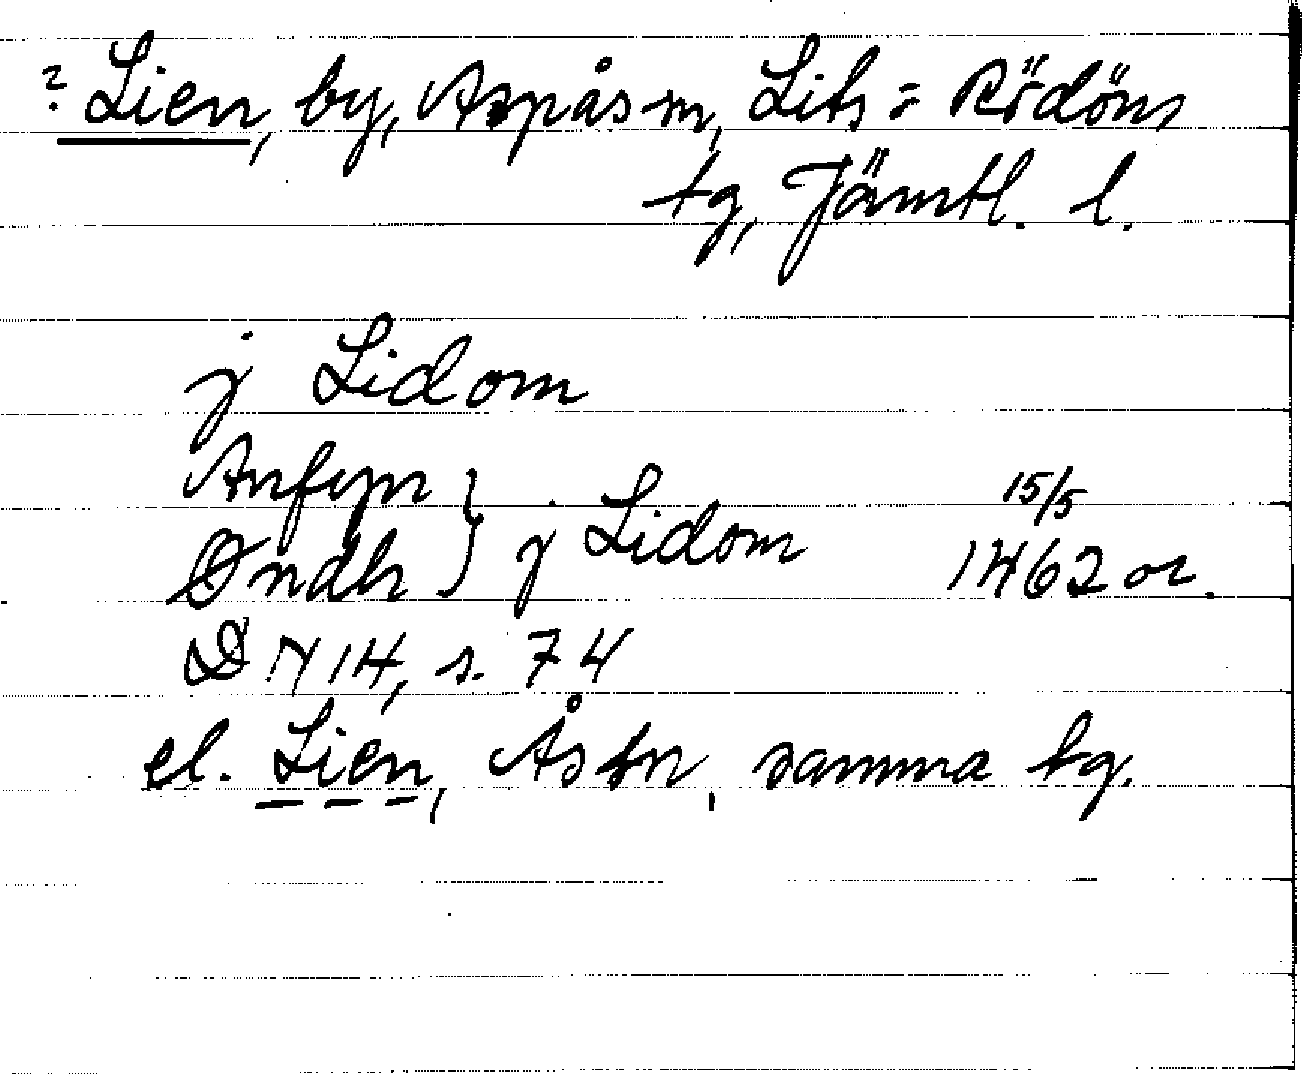 ? Lien, by, Aspås sn, Lits = Rödöns
tg, Jämtl. l.
j Lidom
Anfyn } j Lidom 15/5
Øndh 1462 or.
DN 14, s. 74
el. Lien, Ås sn, samma tg.